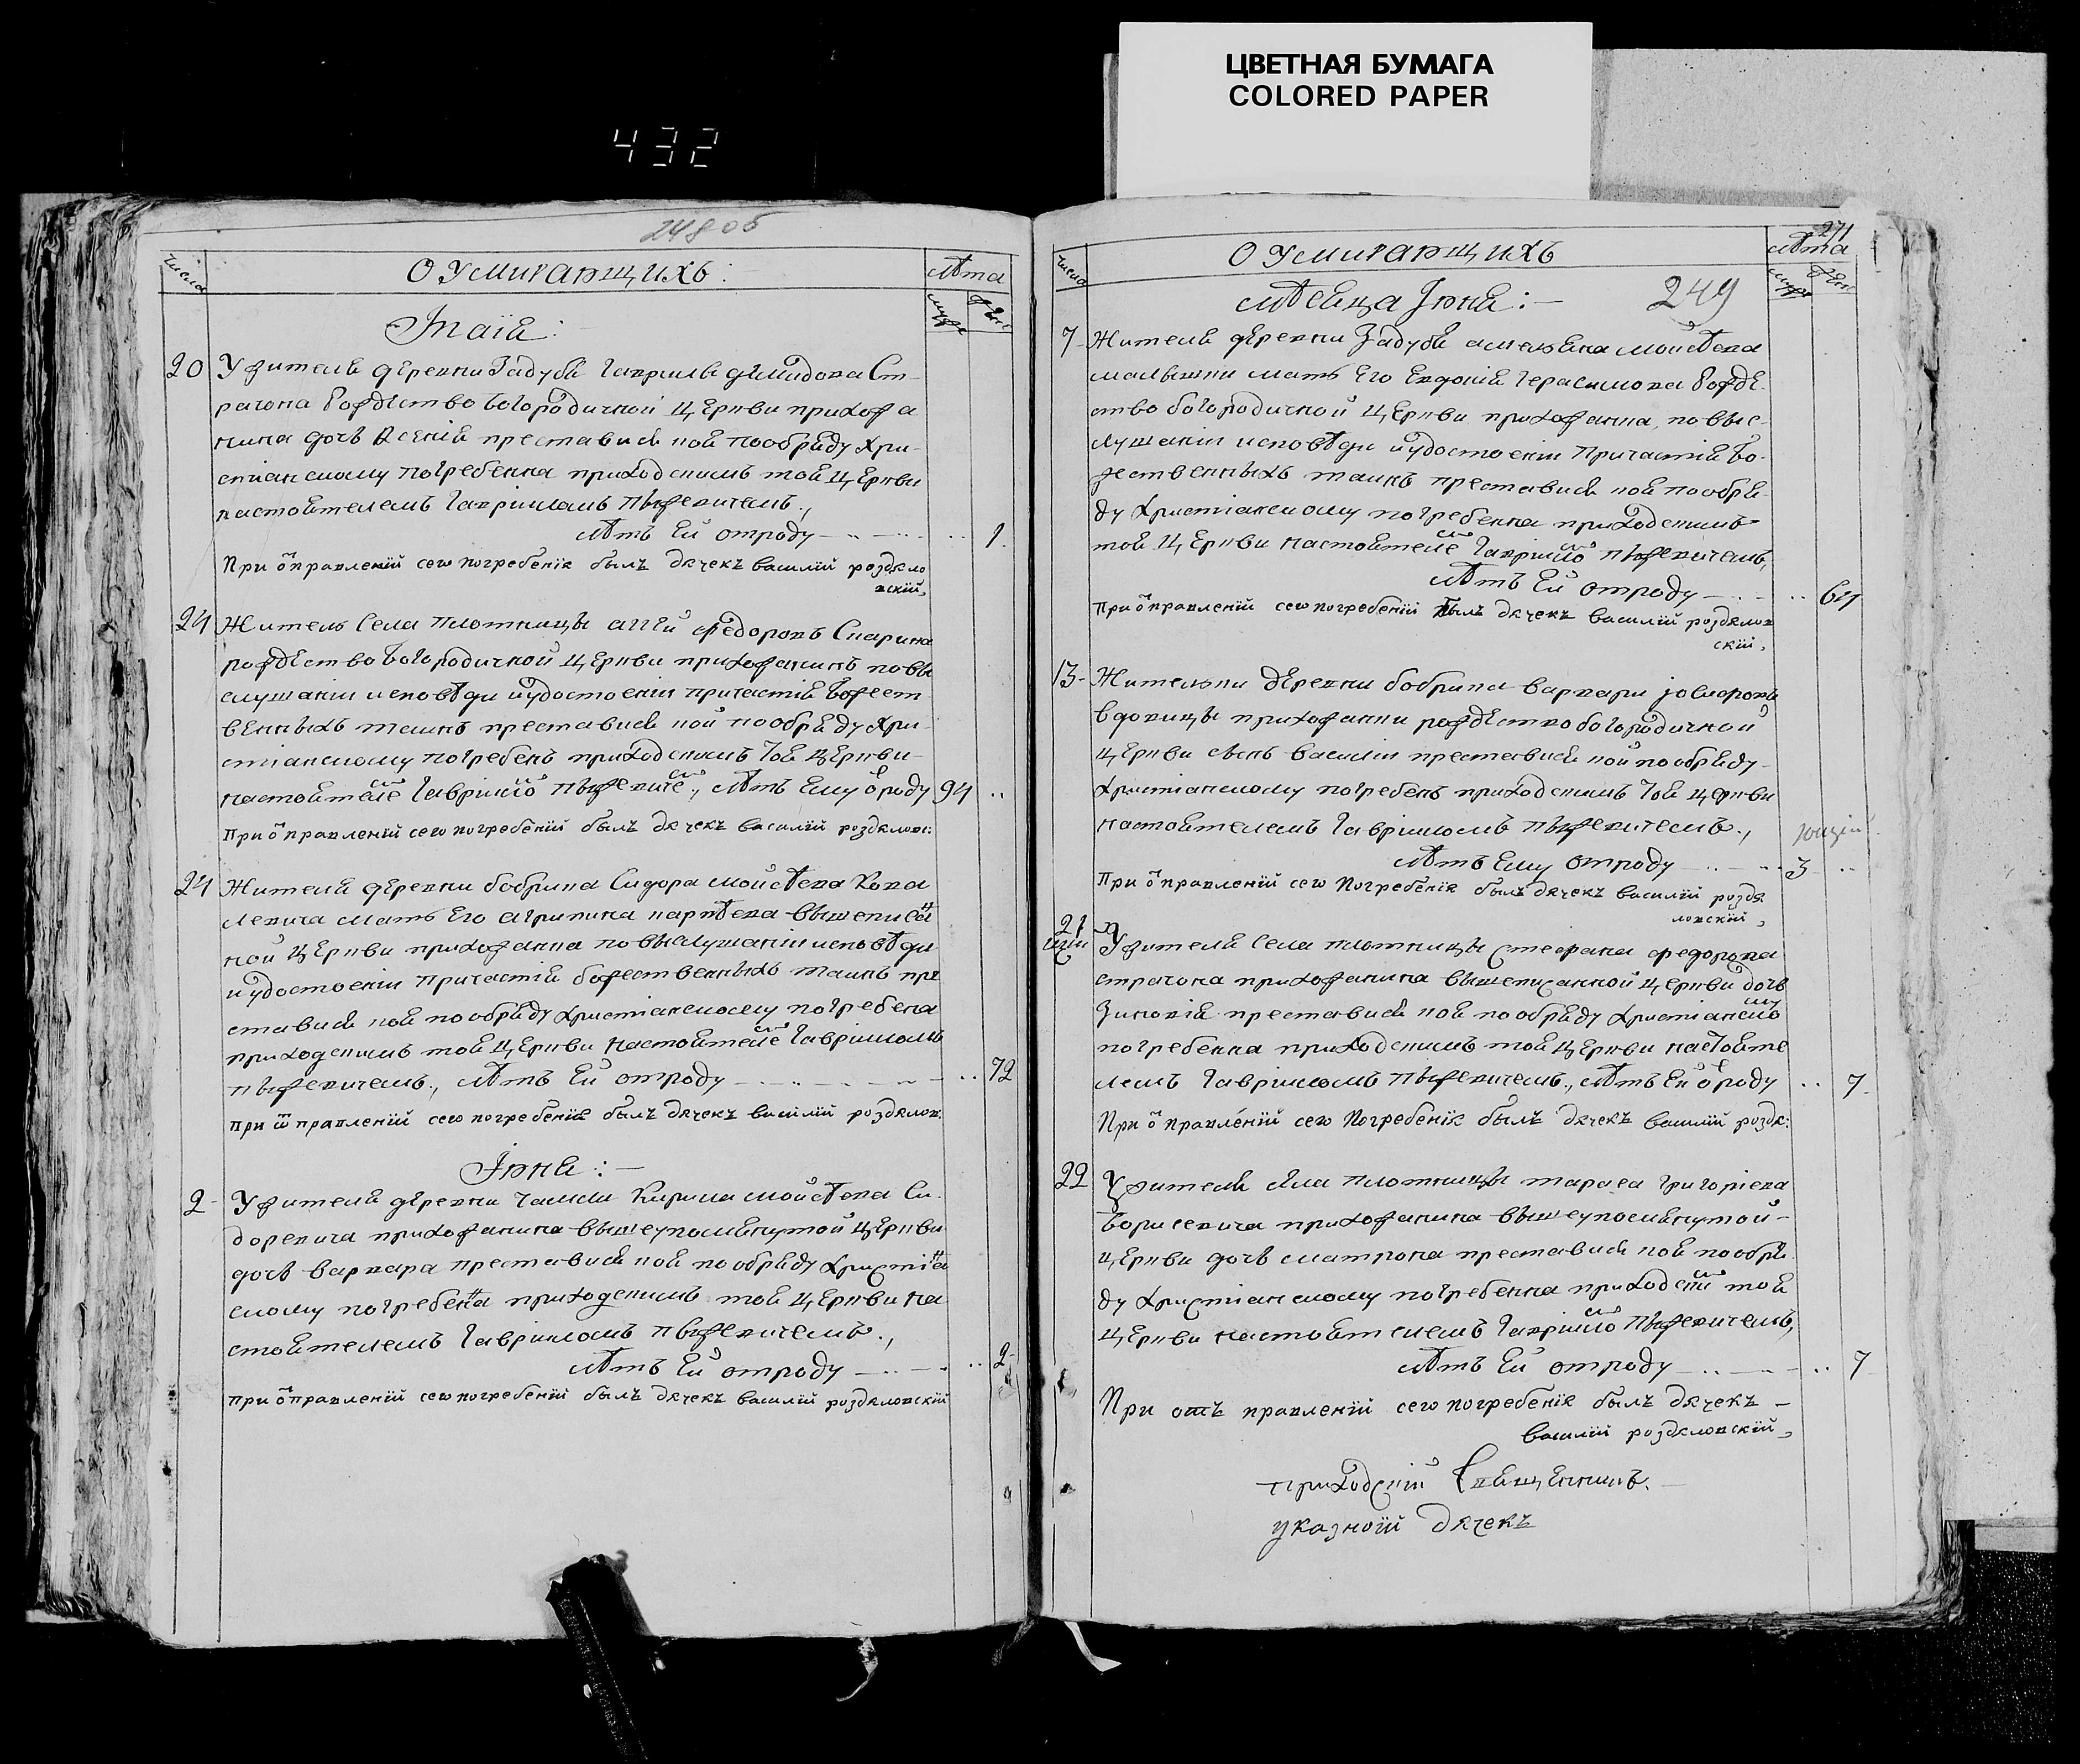 ЦВЕТНАЯ БУМАГА
COLORED PAPER
432
248 об
числа
О Умирающихъ:
лѣта
муже
жен
Маїя:
20 У жителя деревни Задубя Гаврилы демидова Ст-
рачона Рождество Богородичной Церкви прихожа
нина дочь Ксенія преставися коя по обряду Хри-
стіанскому погребенна приходскимъ тоя Церкви
настоятелемъ Гавріиломъ Пыжевичемъ.,
лѣтъ Ей отроду 1
При ѿправленїй сего погребенїя былъ дячекъ василїй роздяло
вскїй,
24 Житель Села Плотницы Аггей Федоровъ Скарина
рождество Богородичной Церкви прихожанинъ по вы
слушаніи исповѣди и удостоеніи причастія Божест
венныхъ таинъ преставися кой по обряду Хри-
стіанскому погребенъ приходскимъ тоя Церкви
настоятелемъ Гавріиломъ Пыжевичемъ., лѣтъ Ему ѿроду 94 ..
При ѿправленїй сего погребенїй былъ дячекъ василїй роздяловс:
24 Жителя деревни бобрика Сидора мойсѣева Кова
левича мать Его агрипина карпѣева вышеписан
ной Церкви прихожанка по выслушаніи исповѣди
и удостоеніи причастія божественныхъ таинъ пре
ставися коя по обряду христіанскому погребена
приходскимъ тоя Церкви настоятелемъ Гавріиломъ
пыжевичемъ., лѣтъ Ей отроду .. 72
при ѿправленїй сего погребенїя былъ дячекъ василїй роздялов:
Іюня:
2 У жителя деревни Кирила мойсѣева Си-
доревича прихожанина вышеупомянутой Церкви
дочь варвара преставися коя по обряду христіан
скому погребенна приходскимъ тоя Церкви на
стоятелемъ Гавріиломъ пыжевичемъ.,
лѣтъ Ей отроду .. 2
при ѿправленїй сего погребенїй былъ дячекъ василїй роздяловскїй
271
число
О Умирающихъ
лѣта
муже
жен
мѣсяца Іюня:
249
7 Жителя деревни Задубя мойсѣева
мать Его Евдокія Герасимова Рожде-
ство богородичной Церкви прихожанка, по выс-
лушаніи исповѣди и удостоеніи Причастія Бо-
жественныхъ таинъ преставися коя по обря-
ду Христіанскому погребенна приходскимъ
тоя Церкви настоятелемъ Гавріиломъ пыжевичемъ,
лѣтъ Ей отроду .. 64
При ѿправленїй сего погребенїй былъ дячекъ василїй роздялов
скїй,
13 Жительки деревни бобрика варвари
вдовицы прихожанки рождество богородичной
Церкви сынъ василій преставися кой по обряду
Христіанскому погребенъ приходскимъ тоя церкви
настоятелемъ Гавріиломъ пыжевичемъ.,
лѣтъ Ему отроду 3 ..
При ѿправленїй сего погребенїя былъ дячекъ василїй роздя
ловскїй,
21 У жителя села плотницы Стефана федорова
страчона прихожанина вышеписанной церкви дочь
Зиновія преставися коя по обряду христіанскому
погребенна приходскимъ тоя церкви настояте
лемъ Гавріиломъ пыжевичемъ., лѣтъ Ей ѿроду .. 7
При ѿправленїй сего погребенїя былъ дячекъ василїй роздя:
22 У жителя села плотницы тараса григоріева
борисевича прихожанина вышеупомянутой
церкви дочь матрона преставися коя по обря-
ду Христіанскому погребенна приходскимъ тоя
церкви настоятелемъ Гавріиломъ пыжевичемъ,
лѣтъ Ей отроду .. 7
При отъправленїй сего погребенїя былъ дячекъ
василїй роздяловскїй,
приходскій Священникъ.
указной дячекъ